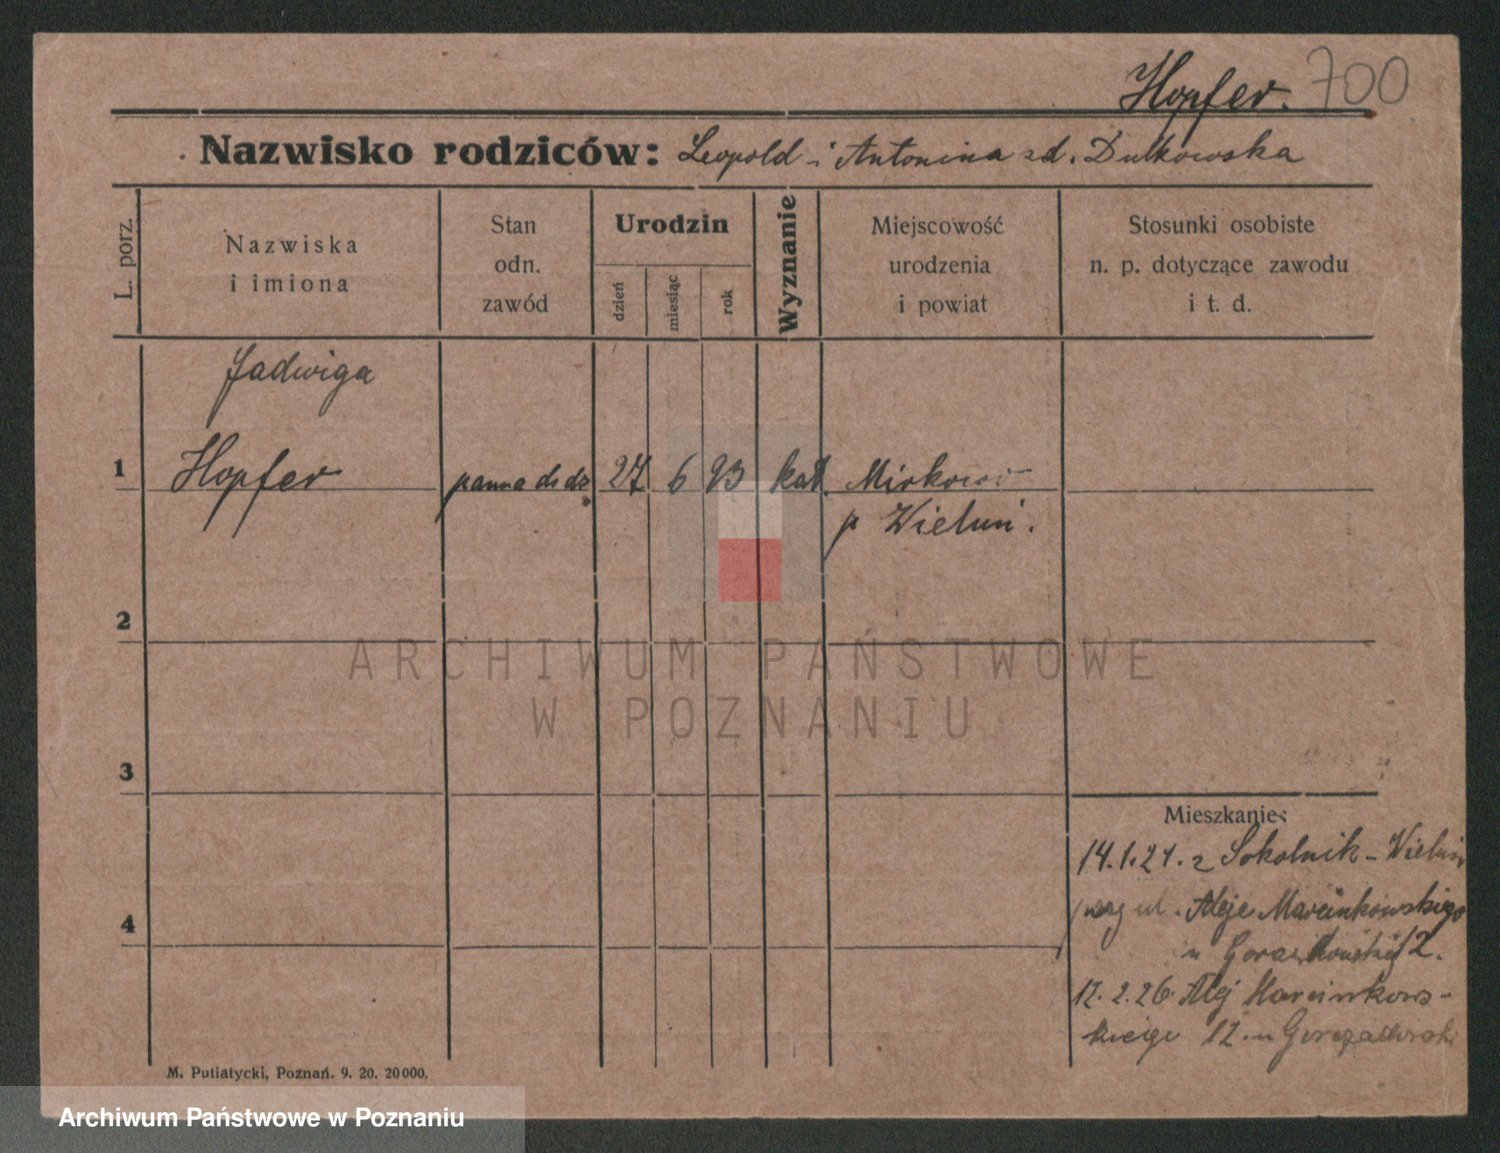 Hopfer. 700
Nazwisko rodziców: Leopold i Antonina zd. Dutkowska
L. porz.
Nazwiska
i imiona
Stan
odn.
zawód
Urodzin
dzień
miesiąc
rok
Wyznanie
Miejscowość
urodzenia
i powiat
Stosunki osobiste
n. p. dotyczące zawodu
i t. d.
Jadwiga
1 Hopfer panna 27 6 93 kat.
p Wieluń.
2
ARCHIWUM PAŃSTWOWE
W POZNANIU
3
Mieszkanie:
14.1.21. z Sokolnik - Wieluń
ul. Aleje Marcinkowskiego
12.
4
12.2.26 Alej Marcinkows-
kiego 12. u
M. Putiatycki, Poznań. 9. 20. 20000.
Archiwum Państwowe w Poznaniu